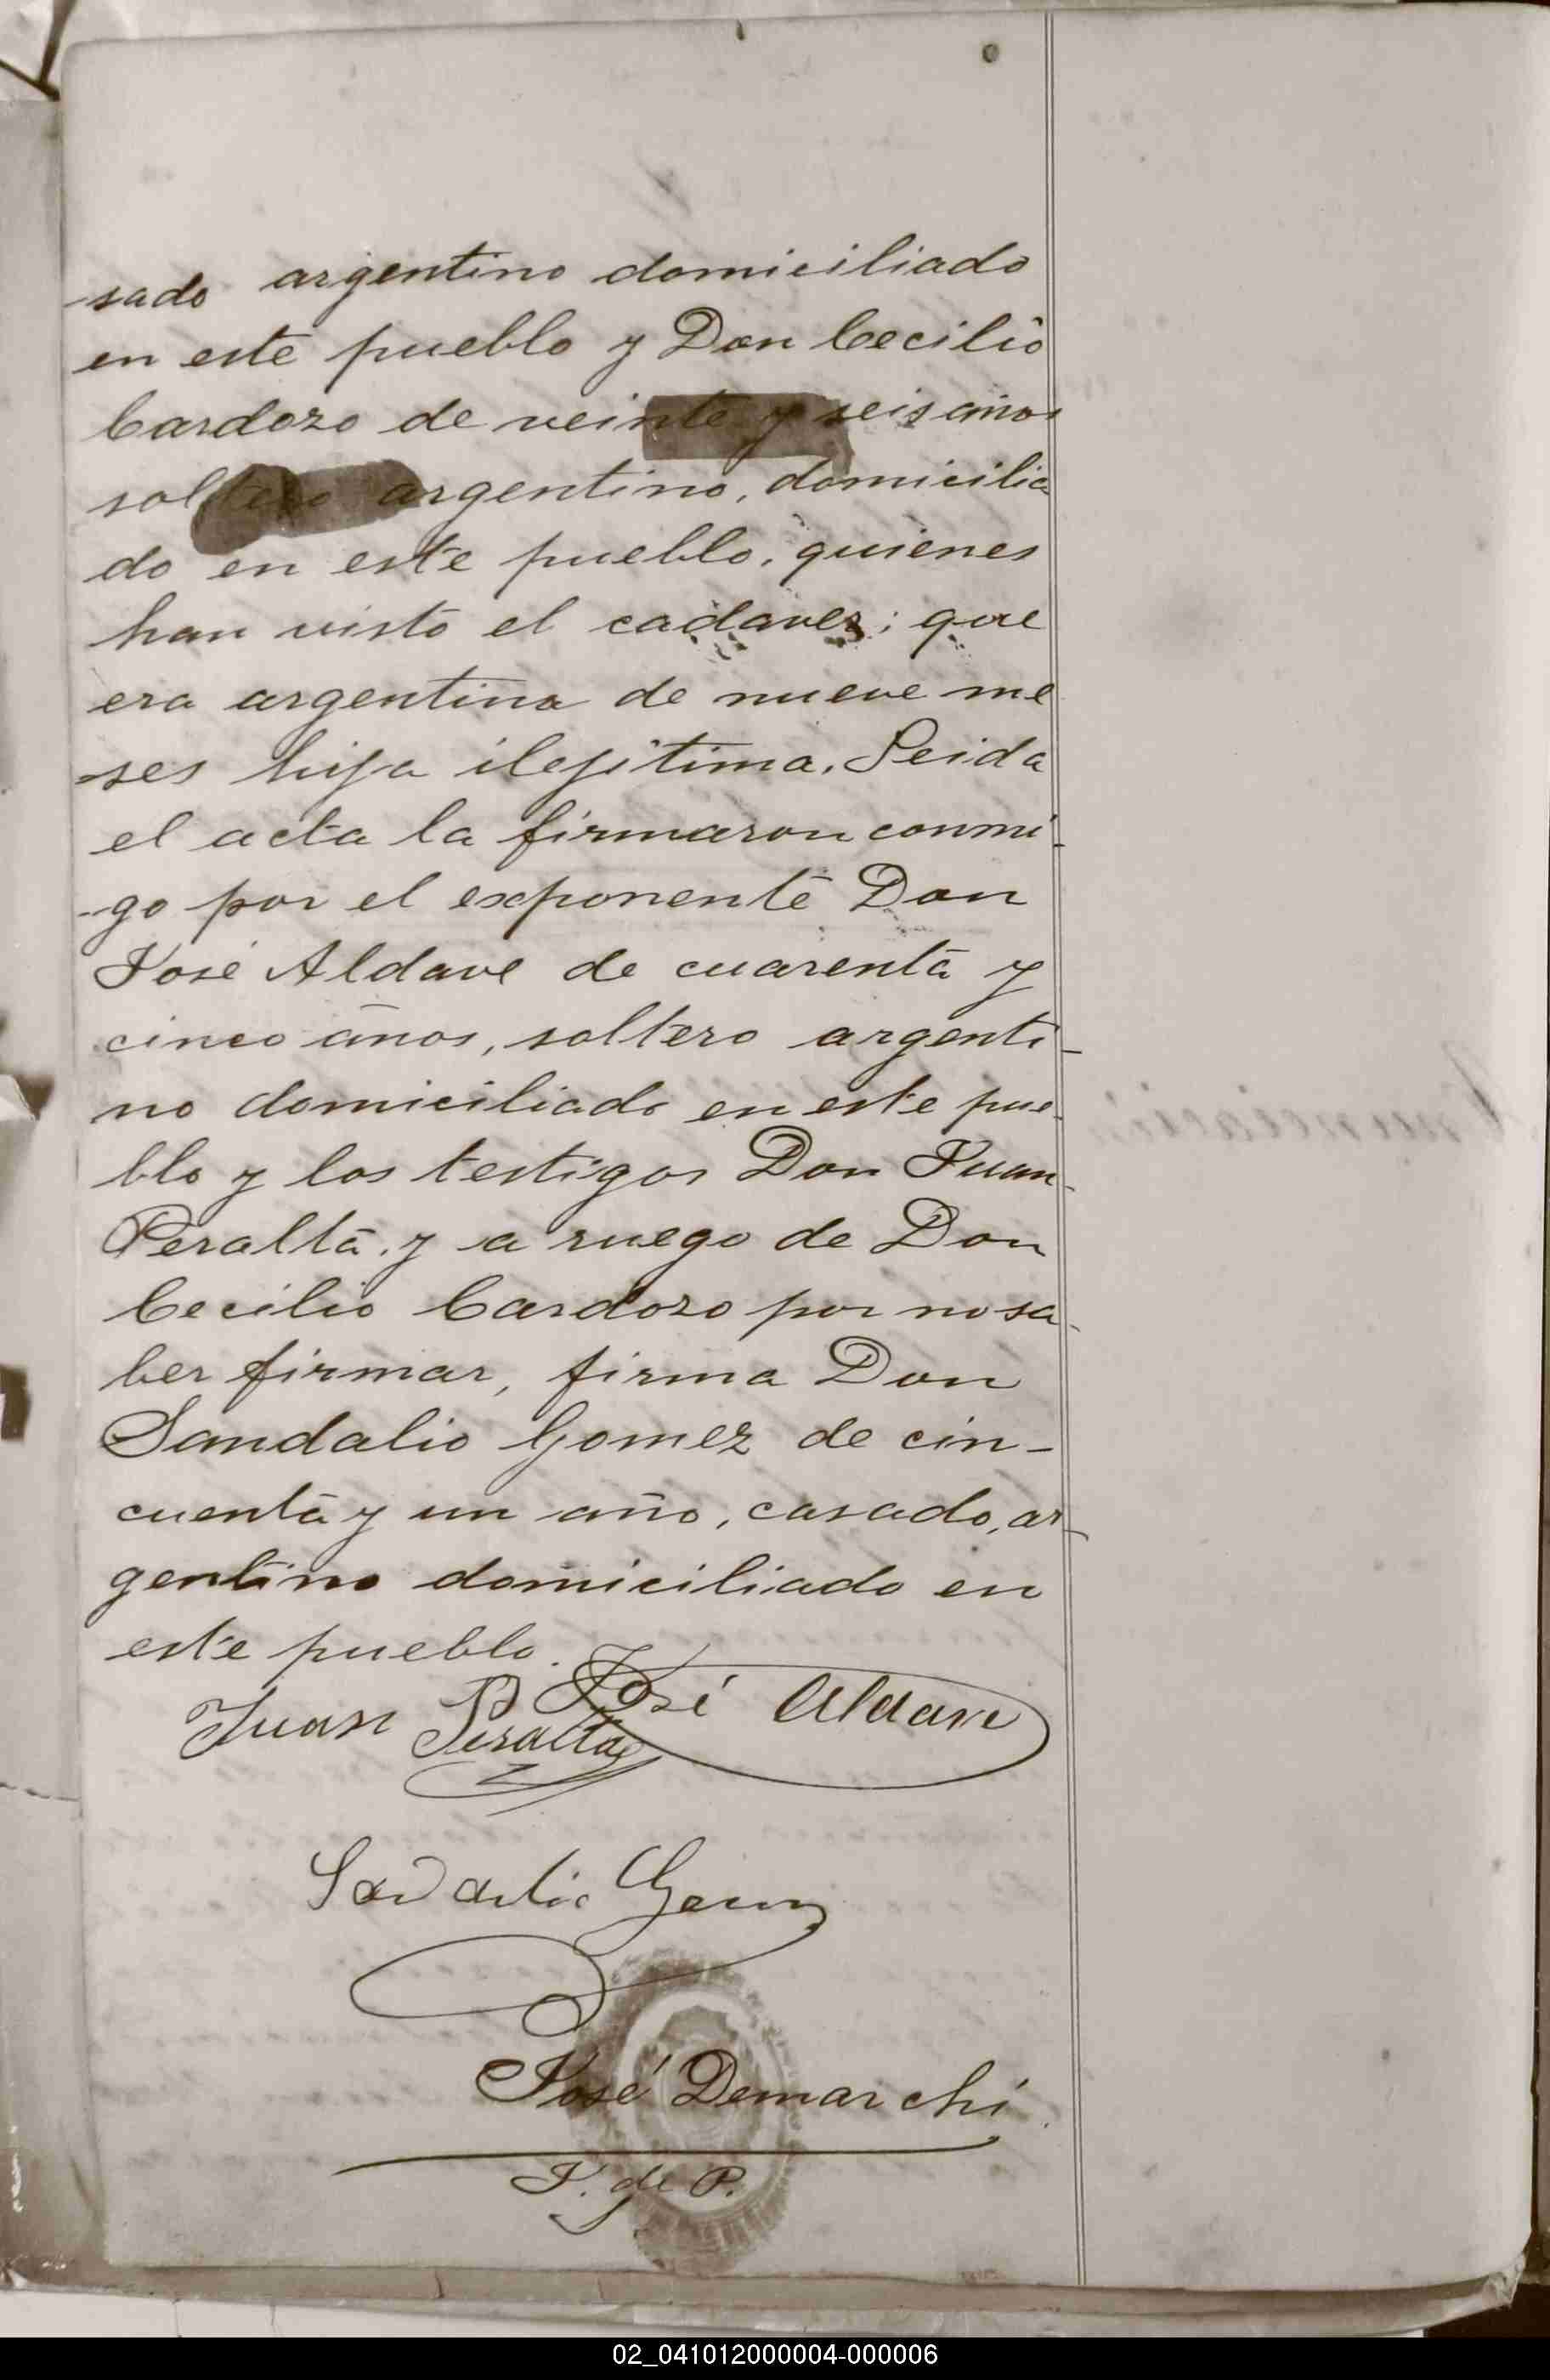 -sado argentino domiciliado
en este pueblo y Don Cecilio
Cardozo de veinte y seis años
soltero argentino, domicilia
do en este pueblo, quienes
han visto el cadaver; que
era argentina de nueve me
-ses hija ilejitima. Leida
el acta la firmaron conmi-
-go por el exponente Don
José Aldave de cuarenta y
cinco años, soltero argenti-
no domiciliado en este pue-
blo y los testigos Don Juan-
Peralta, y a ruego de Don
Cecilio Cardozo por no sa-
ber firmar, firma Don
Sandalio Gomez de cin-
cuenta y un año, casado, ar-
gentino domiciliado en
este pueblo.
José Aldave
Juan Peralta
Sandalio Gomez
José Demarchi
J. de P.
02_041012000004-000006